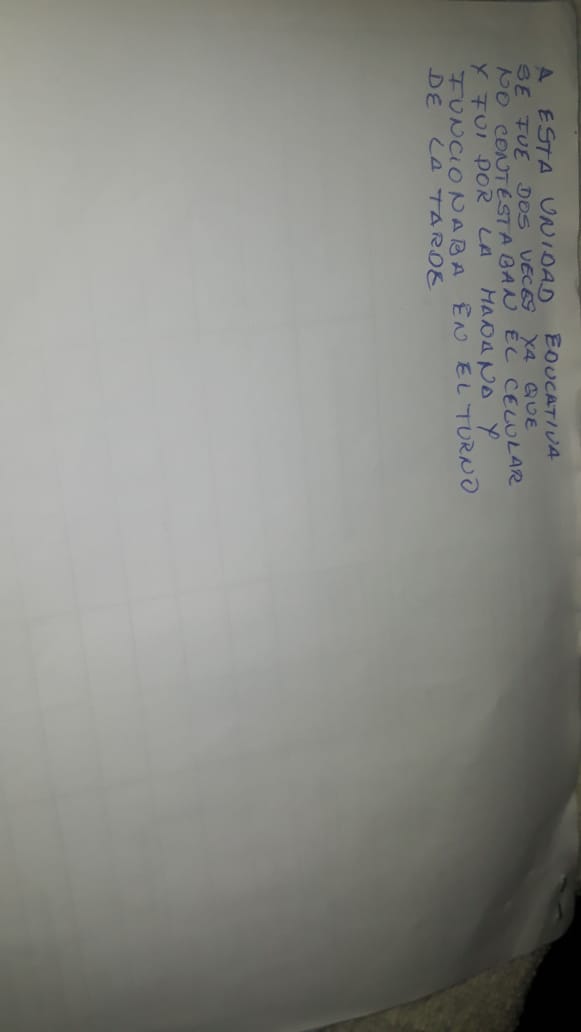 A ESTA UNIDAD EDUCATIVA
SE FUE DOS VECES YA QUE
NO CONTESTABAN EL CELULAR
Y FUI POR LA MAÑANA Y
FUNCIONABA EN EL TURNO
DE LA TARDE